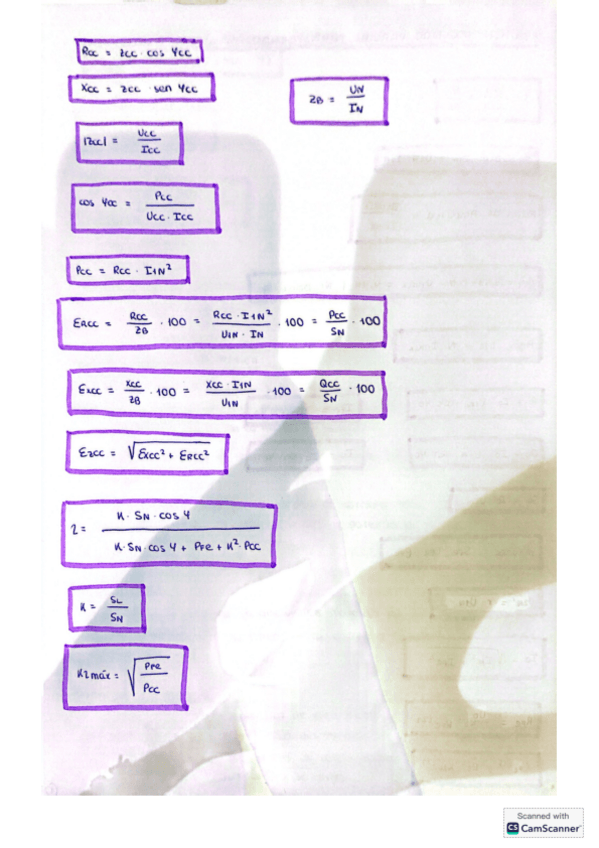 Rcc = Zcc · cos φcc
Xcc = Zcc · sen φcc
ZB = UN / IN
|Zcc| = Ucc / Icc
cos φcc = Pcc / Ucc · Icc
Pcc = Rcc · I1N²
ERcc = Rcc / ZB · 100 = Rcc · I1N² / U1N · IN · 100 = Pcc / SN · 100
Excc = Xcc / ZB · 100 = Xcc · I1N / U1N · 100 = Qcc / SN · 100
Ezcc = √Excc² + ERcc²
η = K · SN · cos φ / K · SN · cos φ + PFe + K² · Pcc
K = SL / SN
Kηmáx = √PFe / Pcc
Scanned with
CS CamScanner